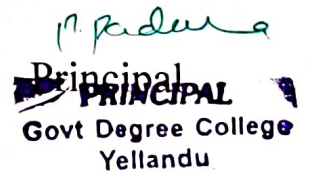 Principal
PRINCIPAL
Govt Degree College
Yellandu